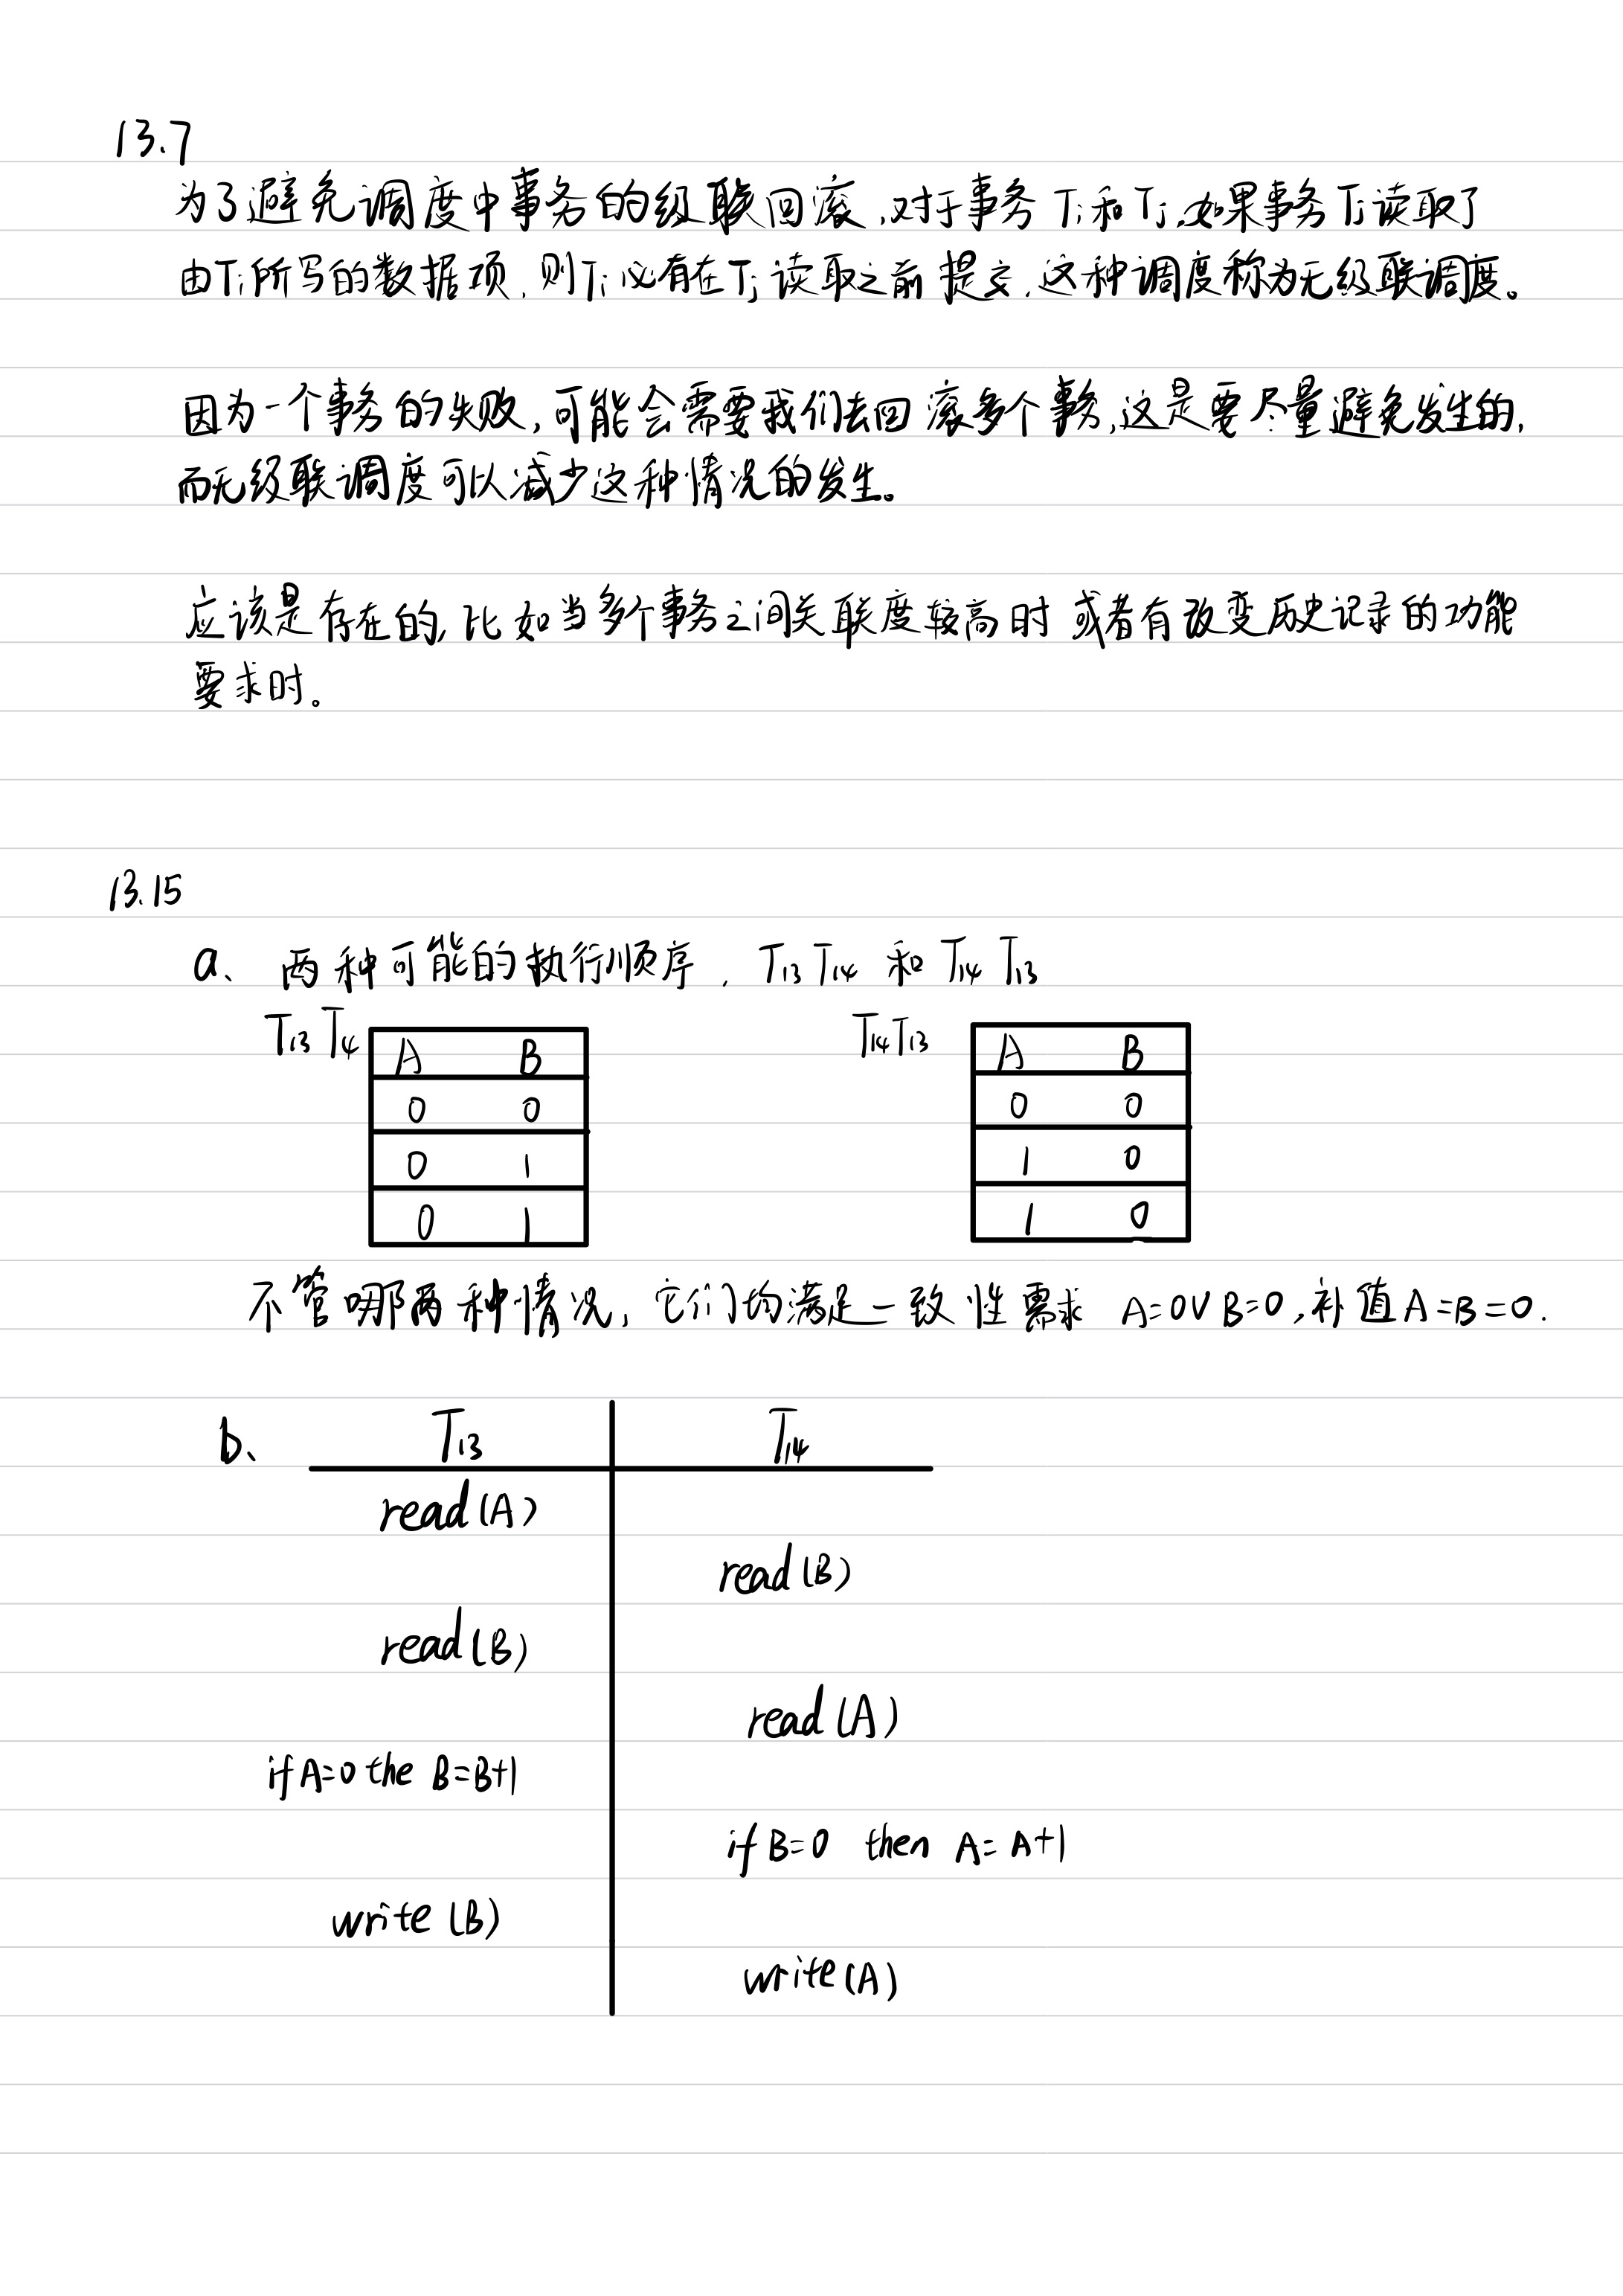 13.7
为了避免调度中事务的级联回滚,对于事务 Ti和Tj,如果事务Tj读取了
由Ti所写的数据项,则Ti必有在Tj读取之前提交,这种调度称为无级联调度。
因为一个事务的失败,可能会需要我们去回滚多个事务,这是要尽量避免发生的,
而无级联调度可以减少这种情况的发生。
应该是存在的,比如当多个事务之间关联度较高时 或者有改变历史记录的功能
要求时。
13.15
a、两种可能的执行顺序,T13 T14 和 T14 T13
T13 T14 A B T14 T13 A B
0 0 0 0
0 1 1 0
0 1 1 0
不管哪两种情况,它们均满足一致性需求 A=0∨B=0,补值A=B=0.
b、 T13 T14
read(A)
read(B)
read(B)
read(A)
if A=0 the B=B+1
if B=0 then A=A+1
write(B)
write(A)